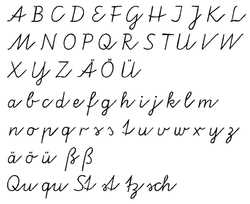 A B C D E F G H I J K L
M N O P Q R S T U V W
X Y Z Ä Ö Ü
a b c d e f g h i j k l m
n o p q r s t u v w x y z
ä ö ü ß ß
Qu qu St st tz sch